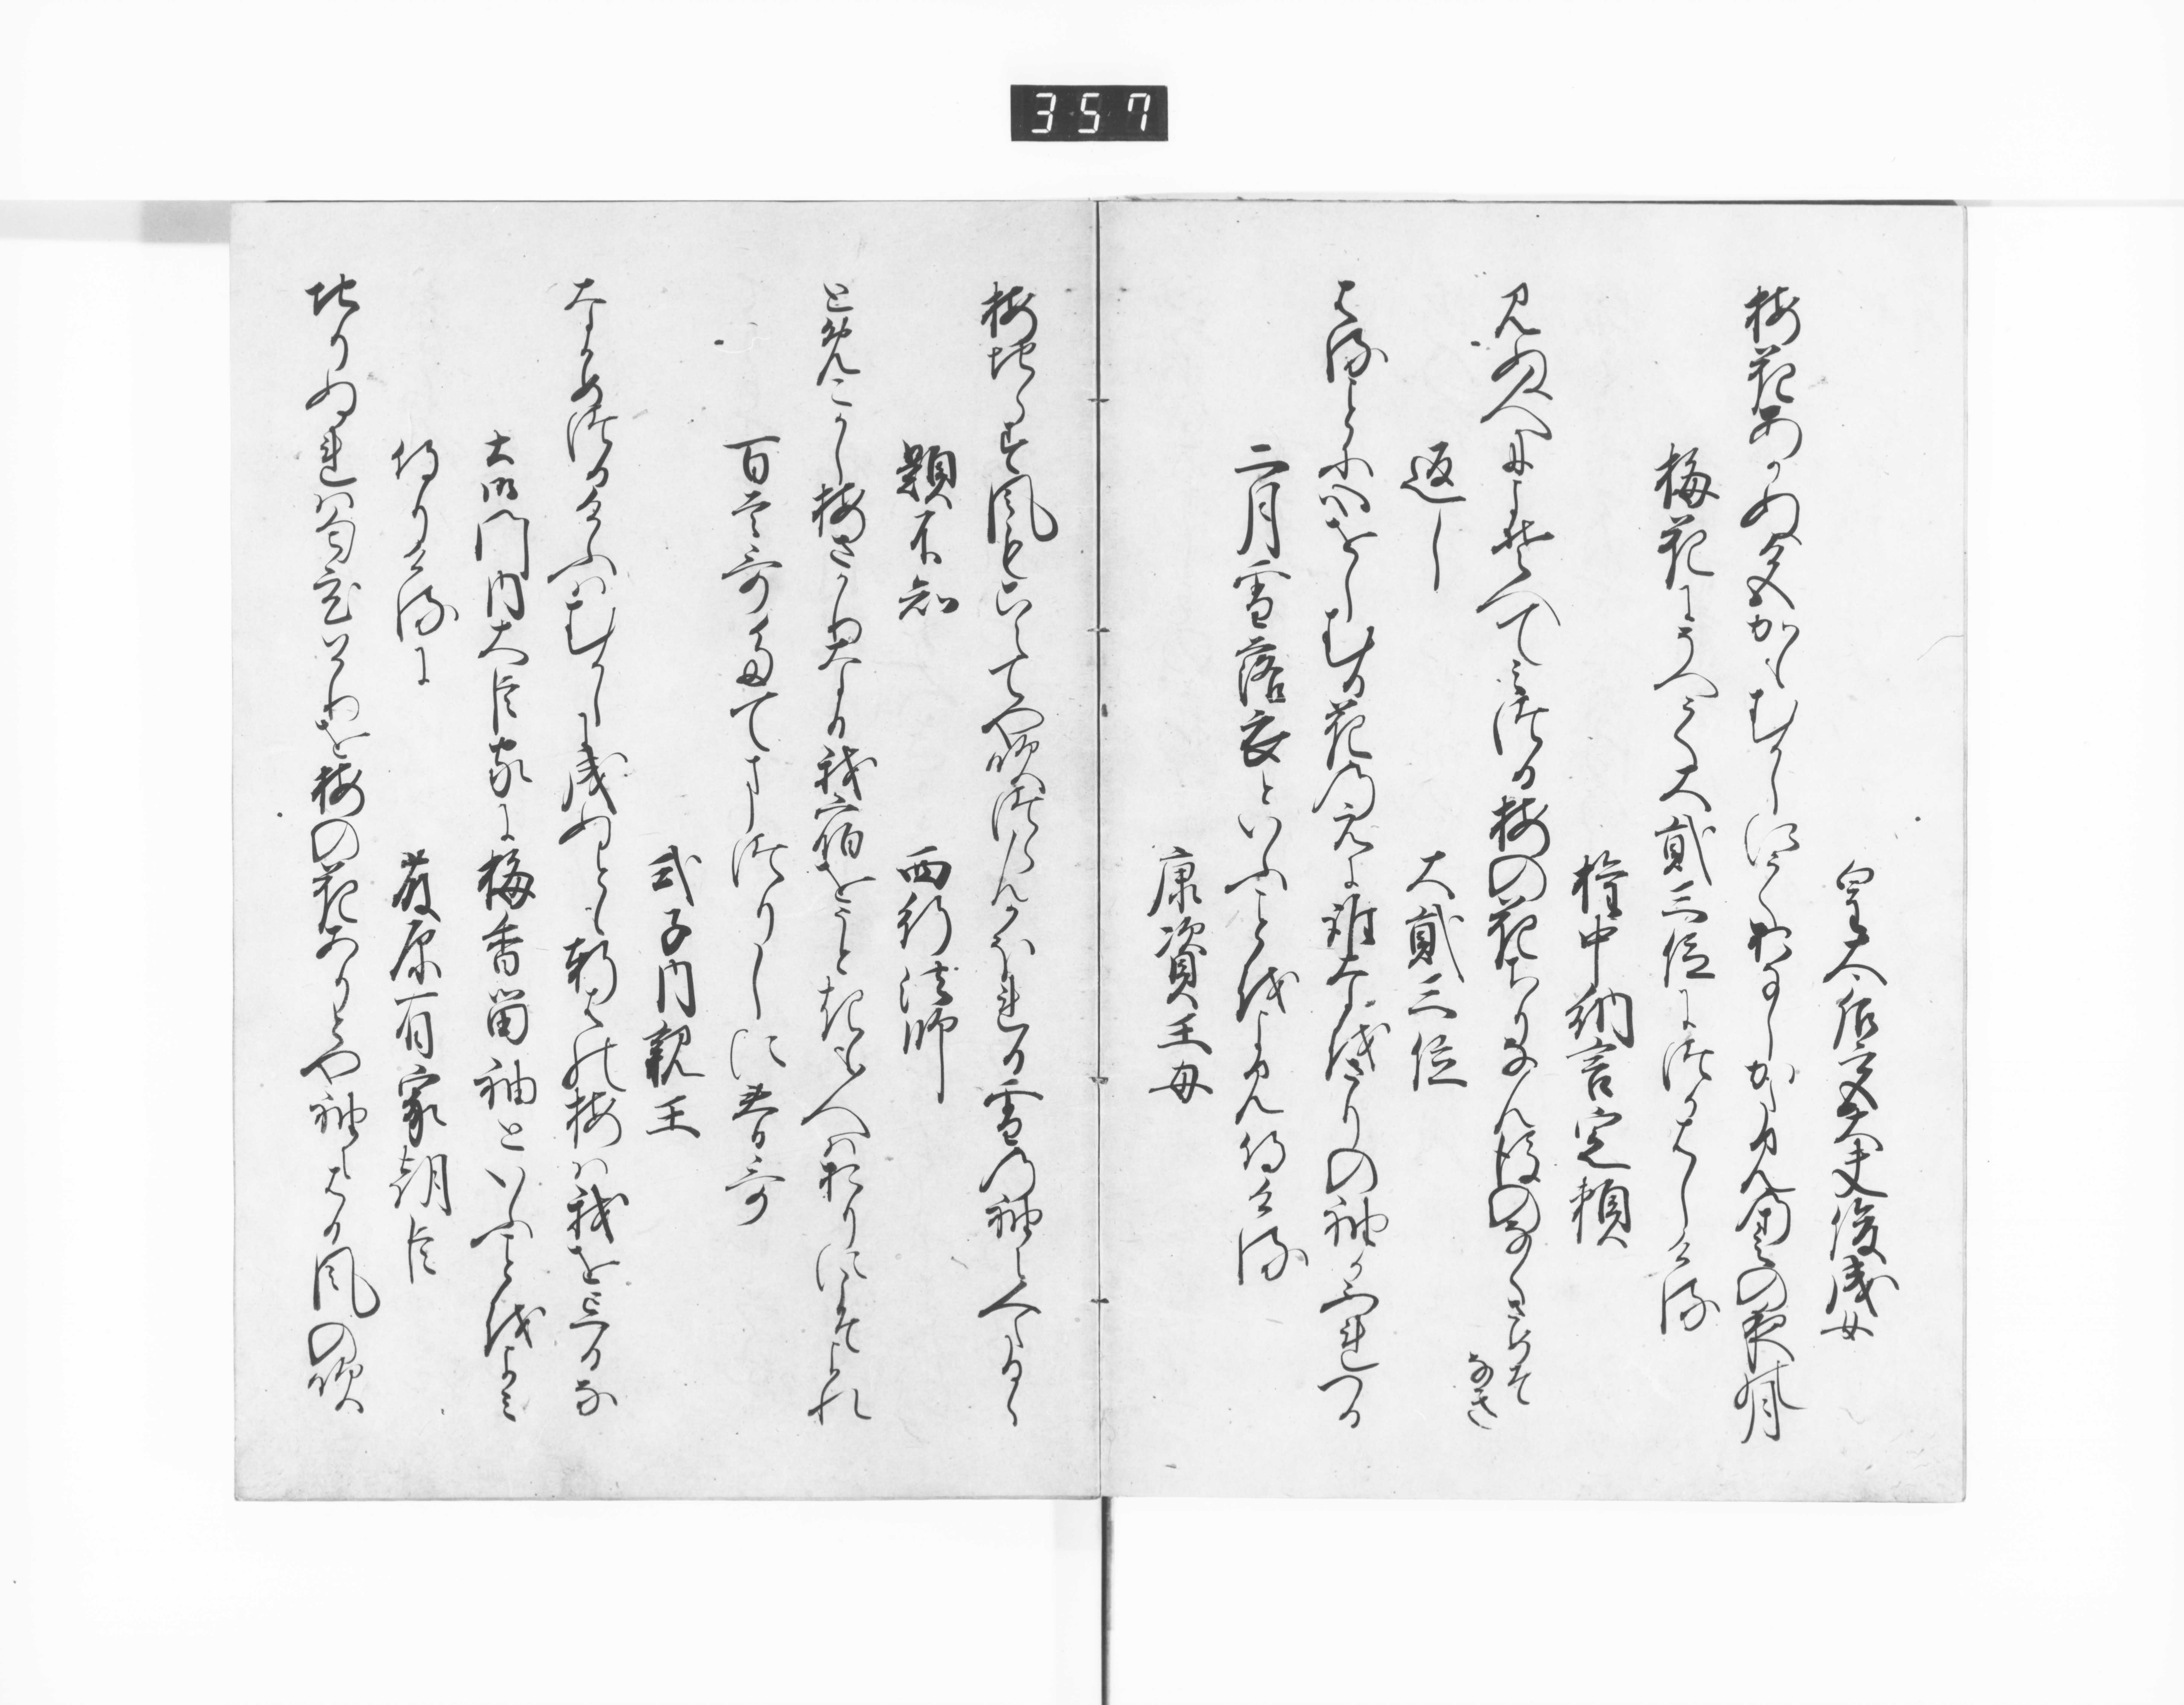 357
皇太后宮大夫俊成女
梅花あかぬ色かもむかしにておなしかたみの春の夜月
梅花にそへて大貳三位につかはしける
権中納言定頼
見ぬ人によそへてみつる梅の花ちりなん後のなくさめそ
なき
返し　大貳三位
はることに心をしむる花のえに誰なをさりの袖かふれつる
二月雪落衣といふことをよみ侍ける
康資王母
梅ちらす風もこえてや吹つらんかほれる雪の袖にみたるゝ
題不知　西行法師
とめこかし梅さかりなる我宿をうときも人はおりにこそよれ
百首哥たてまつりしに春哥
式子内親王
なかめつるけふはむかしに成ぬとも軒はの梅は我をわするな
土御門内大臣家に梅香留袖といふことをよみ
侍りけるに　藤原有家朝臣
ちりぬれは匂はかりを梅の花ありとや袖にはる風の吹